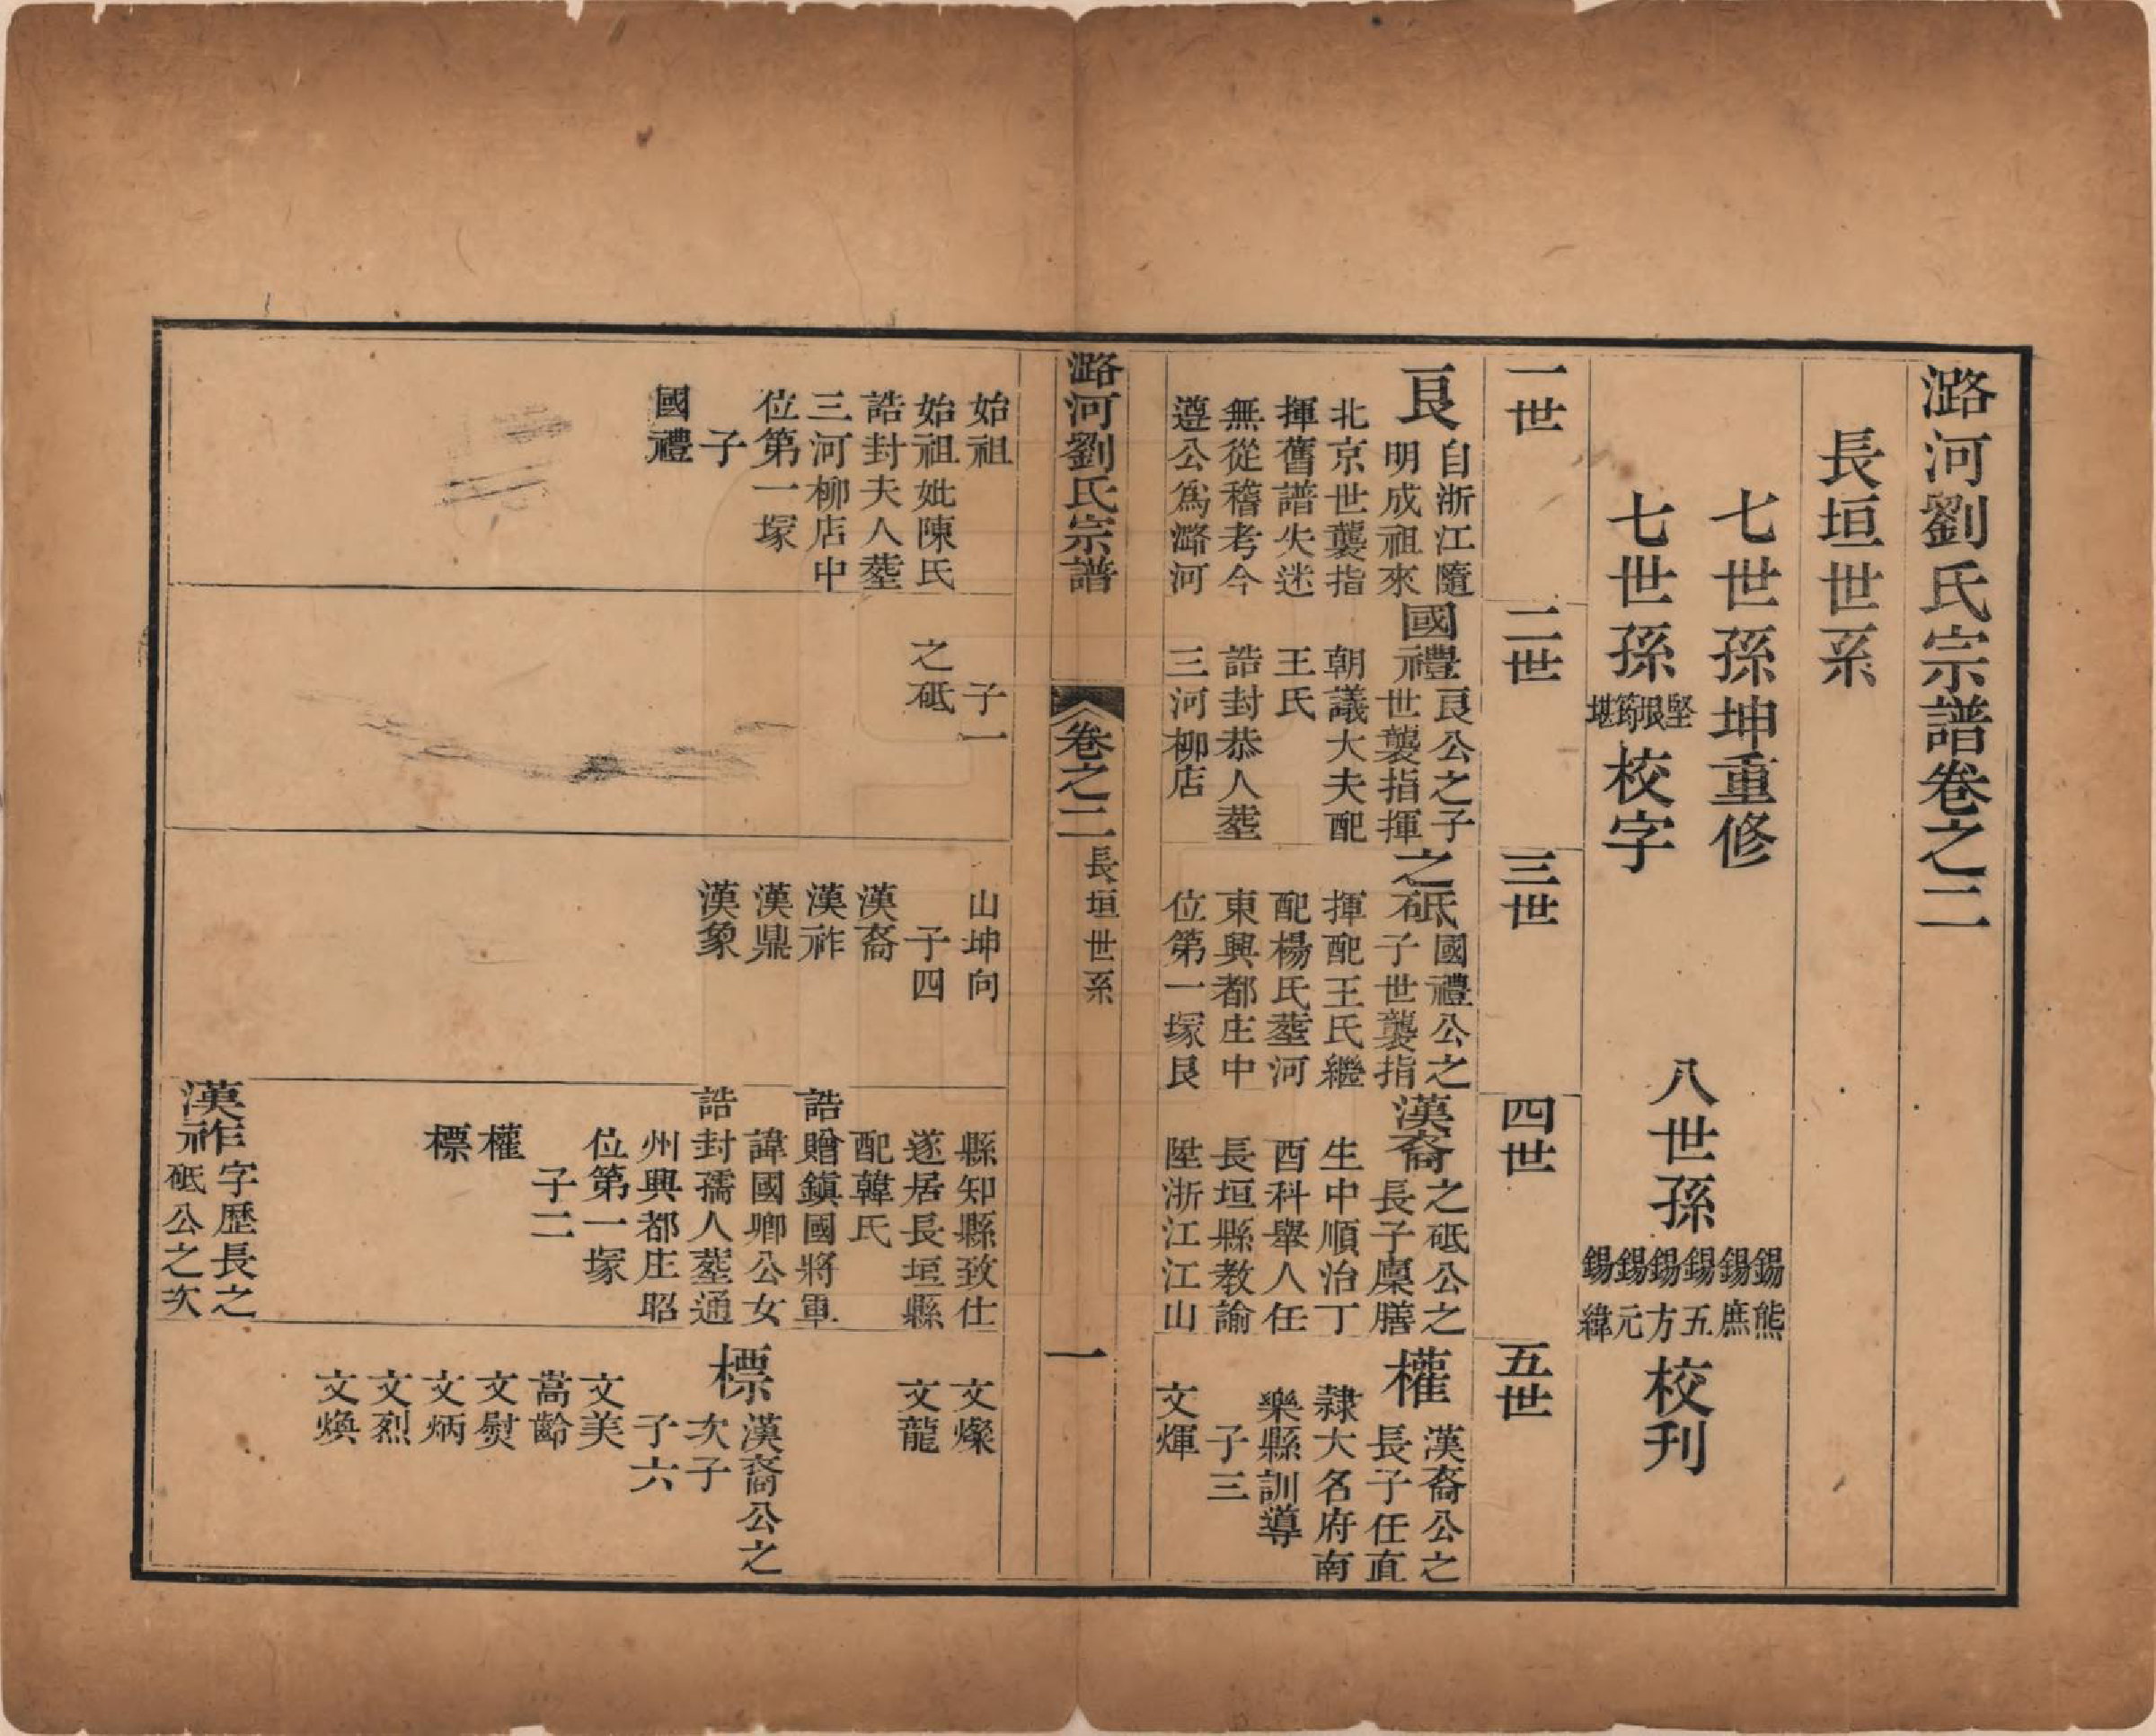 潞河劉氏宗譜卷之二
長垣世系
七世孫坤重修
七世孫堅珢筠堪校字
八世孫錫熊錫庶錫五錫方錫元錫緯校刊
一世
二世
三世
四世
五世
良
自浙江隨
明成祖來
北京世襲指
揮舊譜失迷
無從稽考今
遵公為潞河
國禮
良公之子
世襲指揮
朝議大夫配
王氏
誥封恭人塟
三河柳店
之砥
國禮公之
子世襲指
揮配王氏繼
配楊氏塟河
東興都庄中
位第一塚艮
漢裔
之砥公之
長子廩膳
生中順治丁
酉科舉人任
長垣縣教諭
陞浙江江山
權
漢裔公之
長子任直
隸大名府南
樂縣訓導
子三
文煇
潞河劉氏宗譜
卷之二
長垣世系
一
始祖
始祖妣陳氏
誥封夫人塟
三河柳店中
位第一塚
子
國禮
子一
之砥
山坤向
子四
漢裔
漢祚
漢鼎
漢象
縣知縣致仕
遂居長垣縣
配韓氏
誥贈鎮國將軍
諱國卿公女
誥封孺人塟通
州興都庄昭
位第一塚
子二
權
標
漢祚
字歷長之
砥公之次
文燦
文龍
標
漢裔公之
次子
子六
文美
嵩齡
文熨
文炳
文烈
文煥